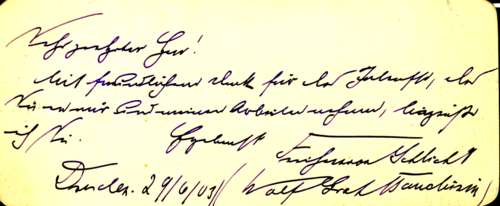 Sehr geehrter Herr!
Mit freundlichem Dank für das Interesse, das
Sie an mir und meinen Arbeiten nehmen, begrüße
ich Sie. Ergebenst
Freiherr von Schlicht
Dresden. 29/6/03 Wolf Graf Baudissin